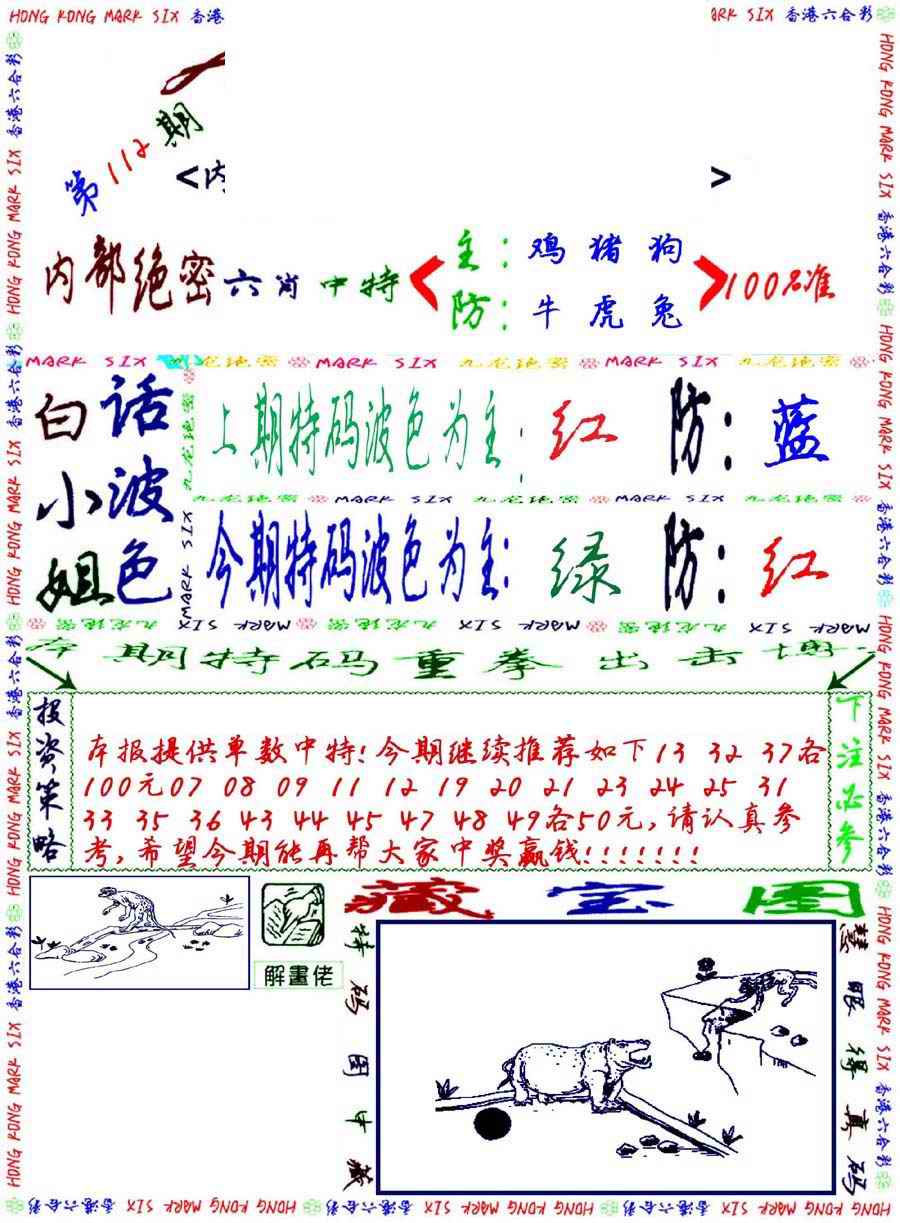 HONG KONG MARK SIX 香港
ARK SIX 香港六合彩
第112期
<内
>
内部绝密六肖中特
主：鸡 猪 狗
防：牛 虎 兔
100%准
MARK SIX 九龙绝密 MARK SIX 九龙绝密 MARK SIX 九龙绝密
白小姐
话波色
上期特码波色为主：红 防：蓝
九龙绝密 MARK SIX 九龙绝密 MARK SIX 九龙绝密
今期特码波色为主：绿 防：红
MARK SIX 九龙绝密 MARK SIX 九龙绝密 MARK SIX 九龙绝密 MARK SIX
本期特码重拳出击
投资策略
本报提供单数中特!今期继续推荐如下13 32 37各
100元07 08 09 11 12 19 20 21 23 24 25 31
33 35 36 43 44 45 47 48 49各50元,请认真参
考,希望今期能再帮大家中奖赢钱!!!!!!!
下注必参
解畫佬
藏宝图
特码图中藏
慧眼得真码
HONG KONG MARK SIX 香港六合彩 HONG KONG MARK SIX 香港六合彩 HONG KONG MARK SIX 香港六合彩